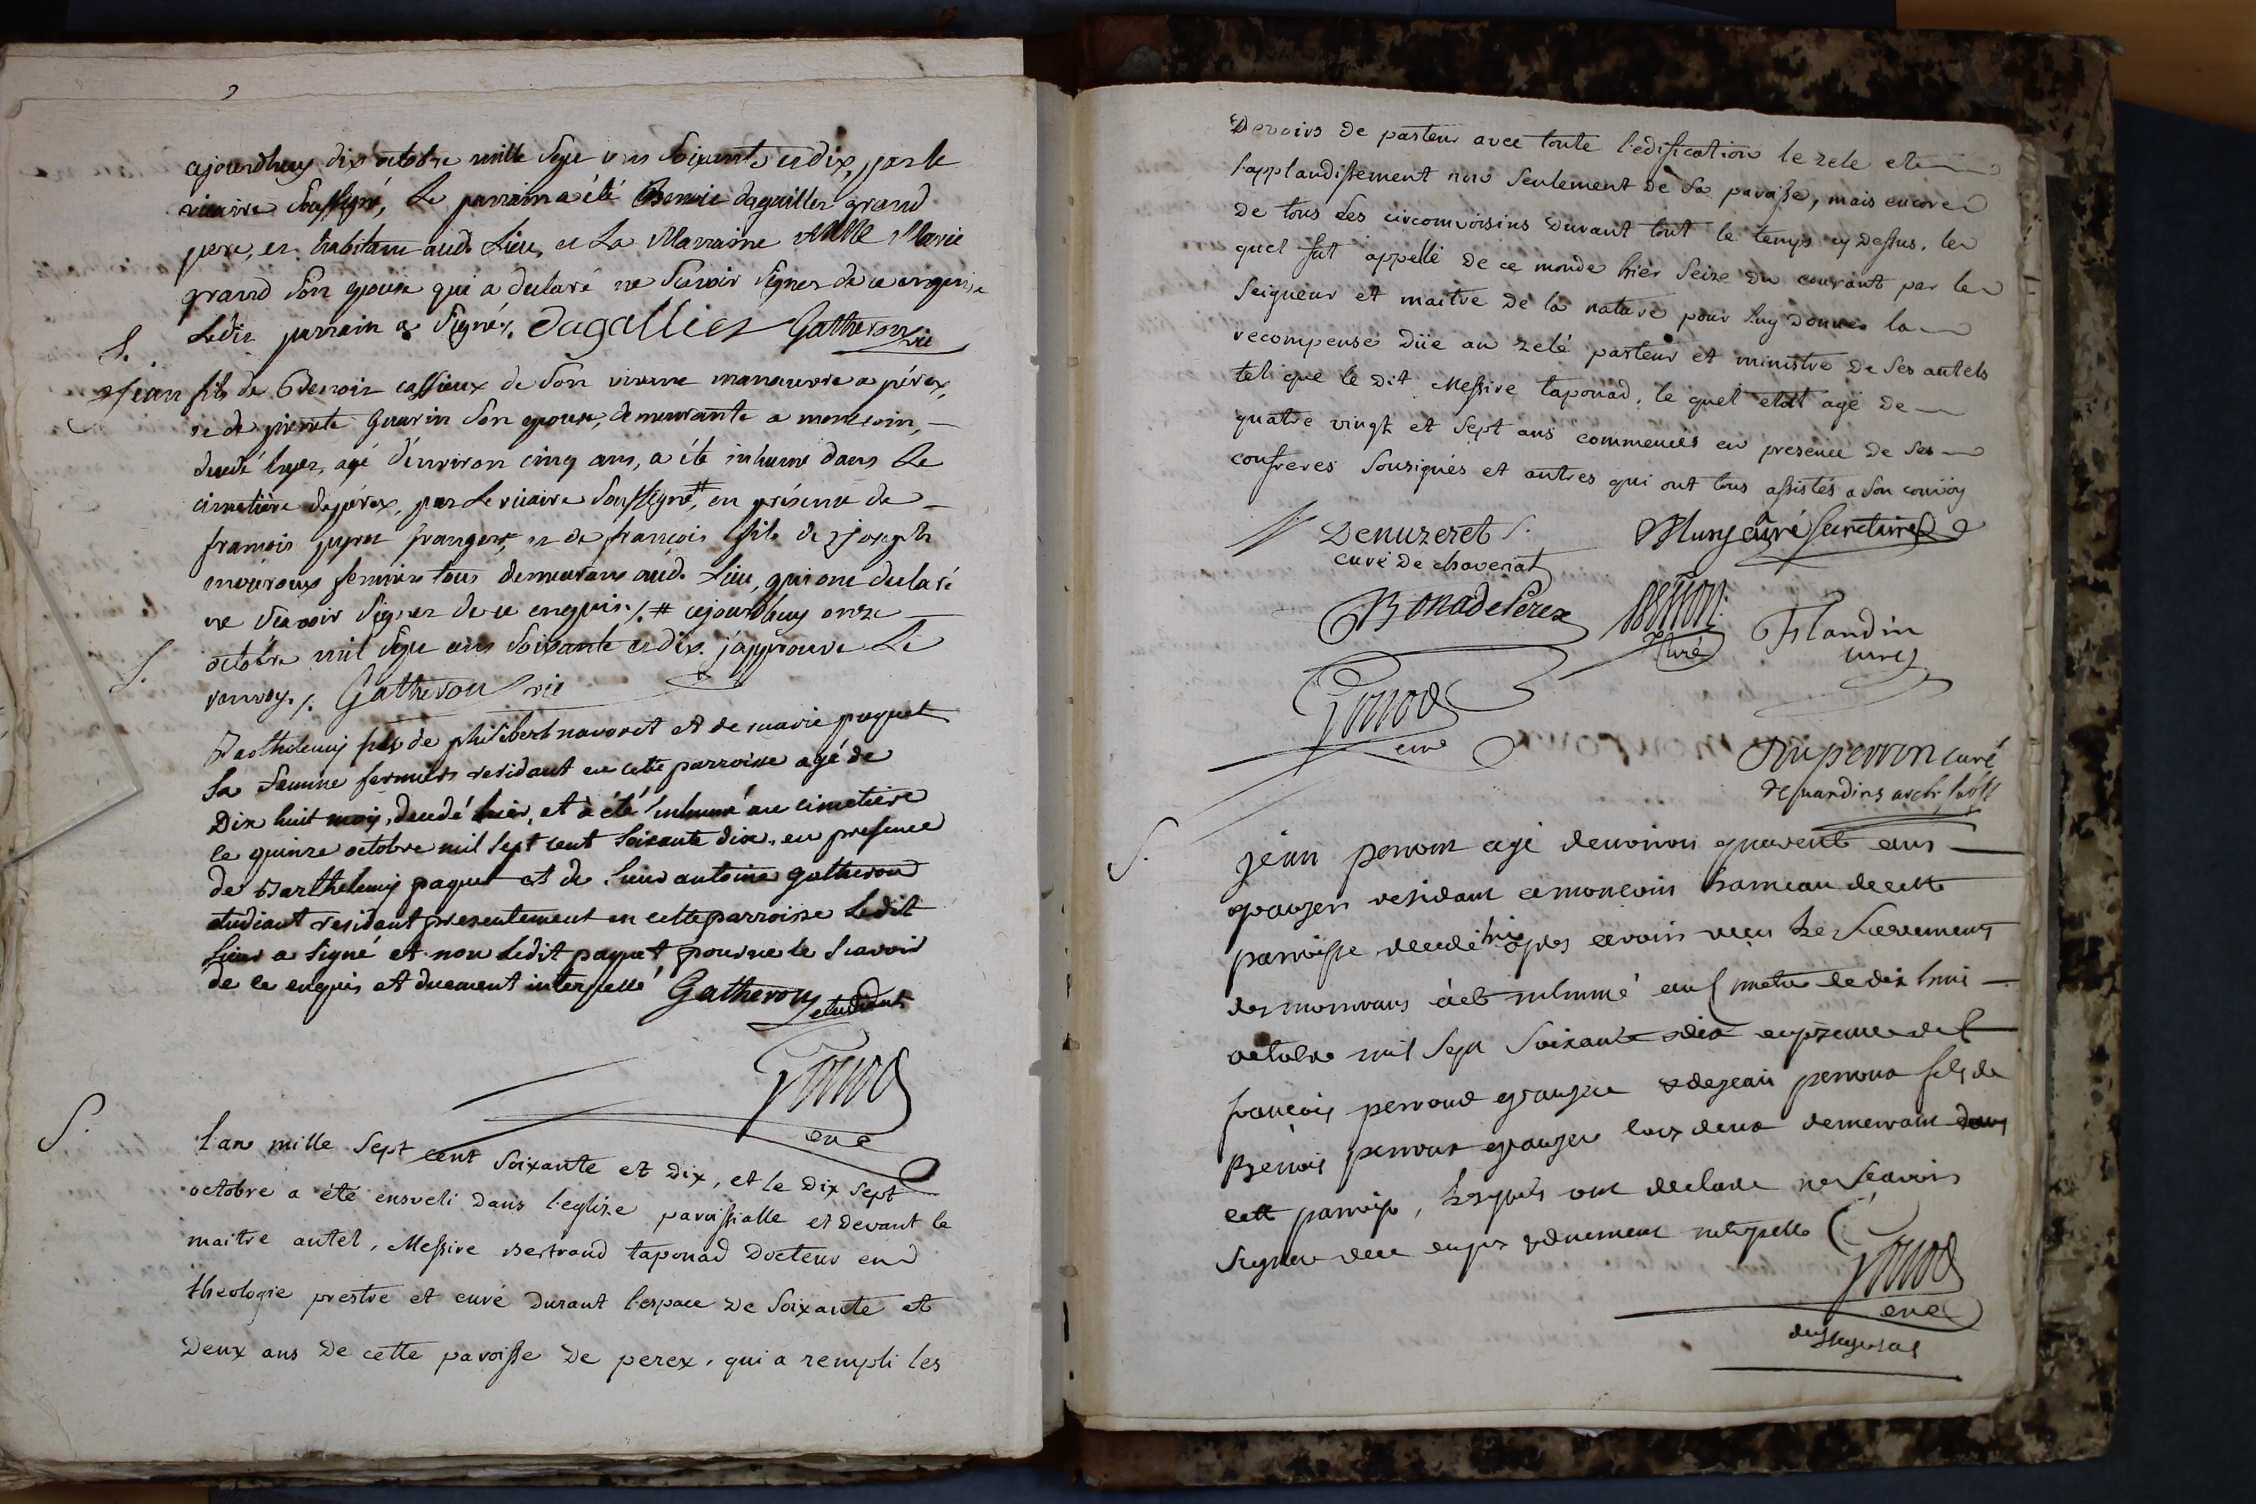 ajourdhuy dix octobre mille Sept cens Soixante et dix, par le
vicaire Soussigné, Le parrain a été Benoit dagaillier grand
pere, et habitant aud. Lieu, et La Marraine Marie
grand Son epouse qui a declaré ne Scavoir Signer de ce enquise
Ledit parrain a Signé. Dagallier Gatheron vic
S.
Jean fils de Benoit cassieux de Son vivant manœuvre a pérex,
et de pierrette Guerin Son epouse, demeurante a montcoin,
decedé hyer, agé d'environ cinq ans, a été inhumé dans Le
cimetière de pérex, par Le vicaire Soussigné #, en présence de
francois granger, et de francois fils de joseph
fermier tous demeurans aud. Lieu, qui ont declaré
ne Scavoir Signer de ce enquis ./. # ajourdhuy onze
octobre mil Sept cens Soixante et dix. j'approuve Le
S.
renvoy ./. Gatheron vic
Barthelemy fils de philibert navoret et de marie paquet
Sa femme fermiers residant en cette parroisse agé de
Dix huit mois, decedé hier, et a été inhumé au cimetiere
le quinze octobre mil Sept cent Soixante dix, en presence
de Barthelemy paquet et de Sieur antoine gatheron
etudiant residant presentement en cette parroisse Ledit
Sieur a Signé et non Ledit paquet pour ne le Scavoir
de ce enquis et duement interpellé Gatheron etudiant
Gonod
curé
S.
L'an mille Sept cent Soixante et Dix, et le Dix Sept
octobre a été enseveli dans l'eglize paroissialle et devant le
maitre autel, Messire Bertrand taponad Docteur en
theologie prestre et curé Durant l'espace De Soixante et
Deux ans De cette paroisse De perex, qui a rempli les
Devoirs de pasteur avec toute l'edification le zele et
l'applaudissement non Seulement De Sa paroisse, mais encore
De tous les circonvoisins Durant tout le temps cy Dessus, le
quel fut appellé De ce monde hier Seize du courant par le
Seigneur et maitre De la nature pour luy donner la
recompense Düe au zelé pasteur et ministre De Ses autels
tel que le Dit Messire taponad, le quel etoit agé De
quatre vingt et Sept ans commencés en presence De Ses
confreres Sousignés et autres qui ont tous assistés a Son convoy
Denuzeret
curé De chavenat
curé Secretaire
Bona de Perex
curé
Flandin
curé
Gonod
curé
Duperron curé
S.
jean perroux agé denviron quarente ans
granger residant a moncoin hameau de cette
parroisse decedé hier apres avoir reçu Les Sacrements
des mourans a été inhumé au Cimetiere le dix huit
octobre mil Sept Soixante dix en presence de
francois perroux granger & de jean perroux fils de
Benoit perroux granger tous deux demeurant dans
cette parroisse, Lesquels ont declaré ne Scavoir
Signer de ce enquis & duement interpellé
Gonod
curé